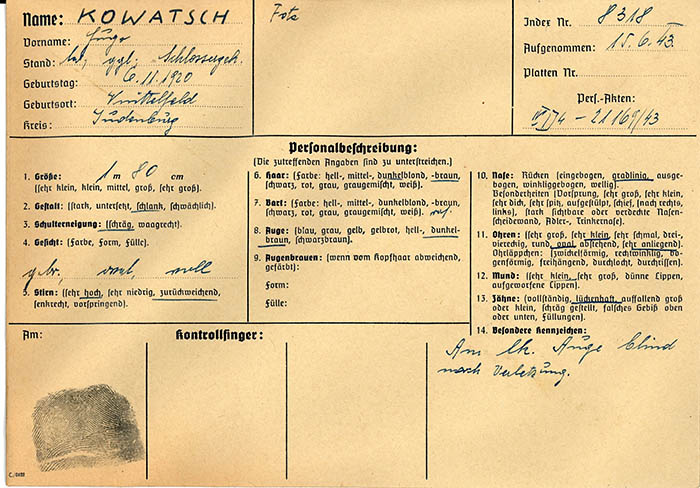 Name: KOWATSCH
Vorname: Hugo
Stand: led., ggl., Schlossergeh.
Geburtstag: 6.11.1920
Geburtsort: Knittelfeld
Kreis: Judenburg
Foto
Index Nr. 8318
Aufgenommen: 15.6.43.
Platten Nr.
Pers.-Akten:
IV D 4 – 21169/43
Personalbeschreibung:
(Die zutreffenden Angaben sind zu unterstreichen.)
1. Größe: 1 m 80 cm
(sehr klein, klein, mittel, groß, sehr groß).
2. Gestalt: (stark, untersetzt, schlank, schwächlich).
3. Schulterneigung: (schräg, waagrecht).
4. Gesicht: (Farbe, Form, Fülle).
gebr., oval, voll
5. Stirn: (sehr hoch, sehr niedrig, zurückweichend,
senkrecht, vorspringend).
6. Haar: (Farbe: hell-, mittel-, dunkelblond, -braun,
schwarz, rot, grau, graugemischt, weiß).
7. Bart: (Farbe: hell-, mittel-, dunkelblond, -braun,
schwarz, rot, grau, graugemischt, weiß).
8. Auge: (blau, grau, gelb, gelbrot, hell-, dunkel-
braun, schwarzbraun).
9. Augenbrauen: (wenn vom Kopfhaar abweichend,
gefärbt):
Form:
Fülle:
10. Nase: Rücken (eingebogen, gradlinig, ausge-
bogen, winkliggebogen, wellig).
Besonderheiten (Vorsprung, sehr groß, sehr klein,
sehr dick, sehr spitz, aufgestülpt, schief, nach rechts,
links), stark sichtbare oder verdeckte Nasen-
scheidewand, Adler-, Trinkernase).
11. Ohren: (sehr groß, sehr klein, sehr schmal, drei-,
viereckig, rund, oval, abstehend, sehr anliegend).
Ohrläppchen: (zwickelförmig, rechtwinklig, bo-
genförmig, freihängend, durchlocht, durchrissen).
12. Mund: (sehr klein, sehr groß, dünne Lippen,
aufgeworfene Lippen).
13. Zähne: (vollständig, lückenhaft, auffallend groß
oder klein, schräg gestellt, falsches Gebiß oben
oder unten, Füllungen).
14. Besondere Kennzeichen:
Am lk. Auge blind
nach Verletzung.
Am:
Kontrollfinger: